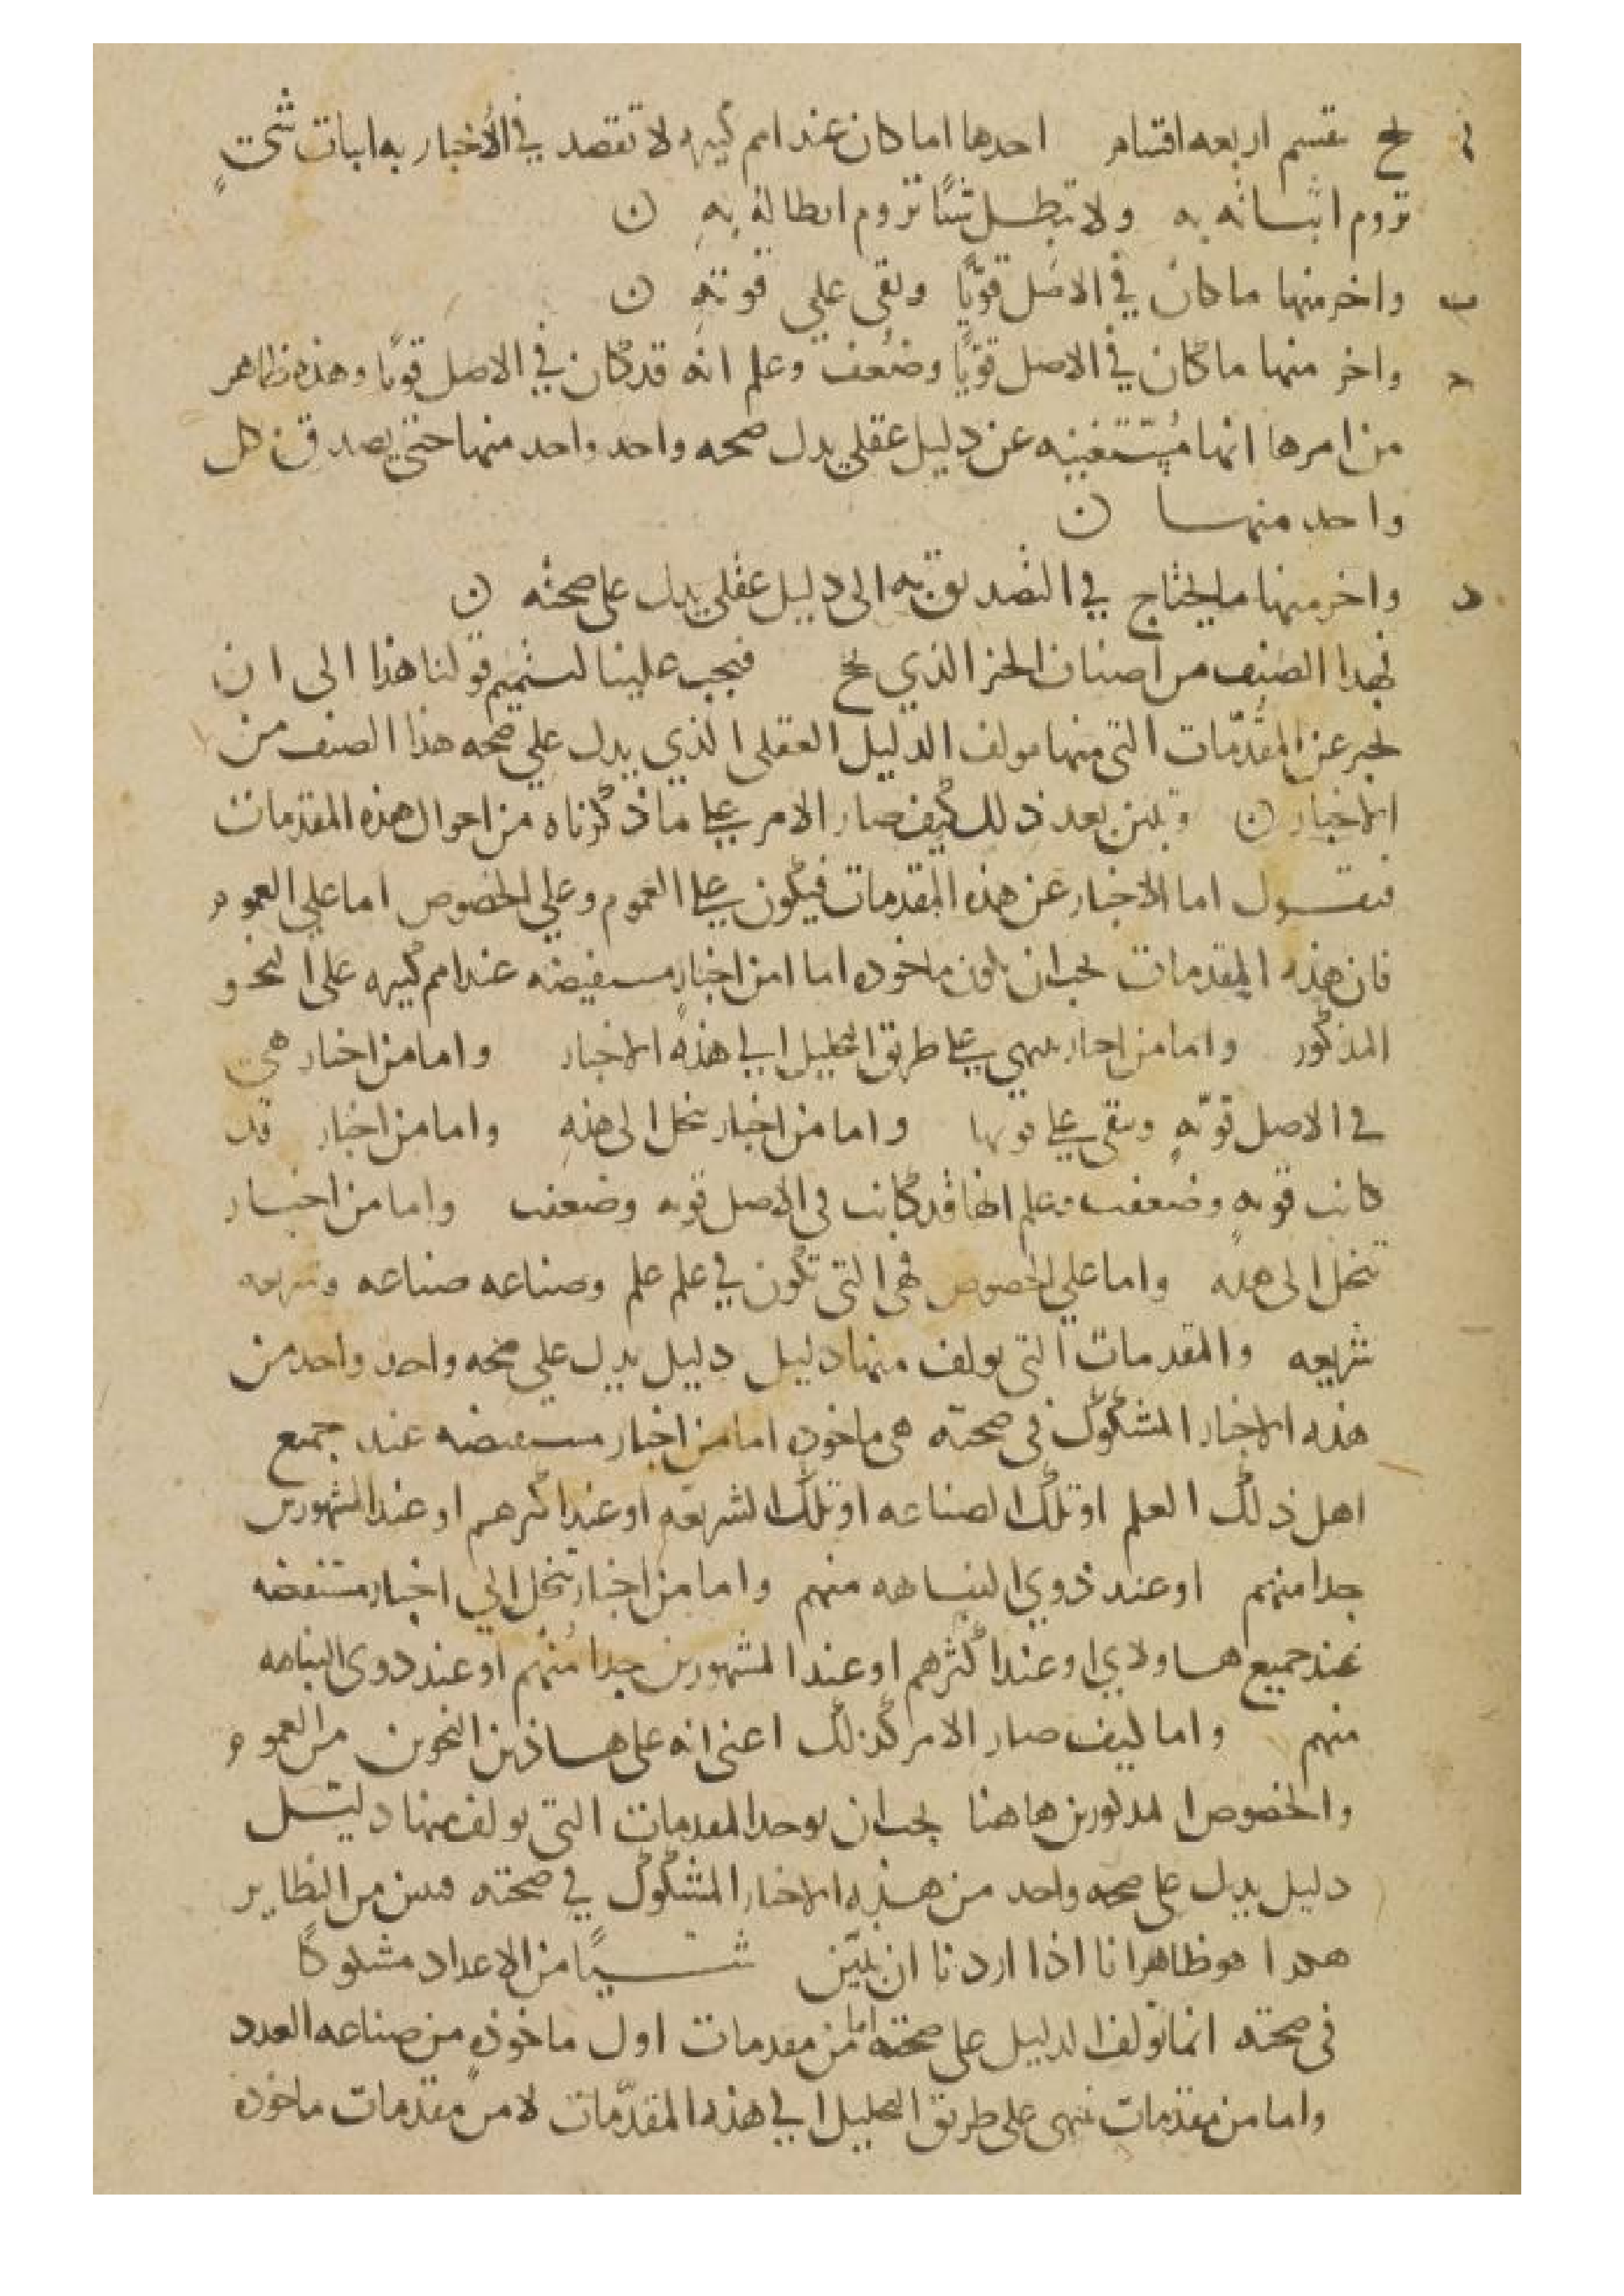 لح ىقسم اربعه اقسام احدها اما كان عند امم كثيره لا تقصد في الأخبار به اثبات شيٍ
تروم اثباته به ولا تبطل شيًا تروم ابطاله بهِ ن
ب واخر منها ما كان في الاصل قويًا وبقى على قوتهِ ن
ج واخر منها ما كان في الاصل قويًا وضَعف وعلم انه قد كان في الاصل قويًا وهذه ظاهر
من امرها انها مُستغنيه عن دليل عقلي يدل صحه واحد واحد منها حتى يصدق كل
واحد منها ن
د واخر منها ما يحتاج في التصديق به الى دليل عقلي يدل على صحته ن
فهدا الصنف من اصناف الخبر الذي لح فيجب علينا لتتميم قولنا هذا الى ان
نخبر عن المقدّمات التى منها مولف الدليل العقلى الذي يدل على صحه هذا الصنف من
الاخبار ن ونبين بعد ذلك كيف صار الامر على ما ذكرناه من احوال هذه المقدمات
فنقول اما الاخبار عن هذه المقدمات فيكون على العموم وعلى الخصوص اما على العموم
فان هذه المقدمات يجب ان تكون ماخوذه اما امن اخبار مستفيضه عند امم كثيره على النحو
المذكور واما من اخبار تنتهي على طريق التحليل الي هذه الاخبار واما من اخبار هي
في الاصل قويّه وتبقى على قوتها واما من اخبار تنحل الى هذهِ واما من اخبار قد
كانت قويه وضعفت وعلم انها قد كانت في الاصل قويه وضعفت واما من اخبار
تنحل الى هذه واما على الخصوص فهي التى تكون في علم علم وصناعه صناعه وشريعه
شريعه والمقدمات التى يولف منها دليل دليل يدل على صحه واحد واحد من
هذه الاخبار المشكوك فى صحته هى ماخوذه اما من اخبار مستفيضه عند جميع
اهل ذلك العلم او تلك الصناعه او تلك الشريعه او عند اكثرهم او عند المشهورين
جدا منهم او عند ذوي النباهه منهم واما من اخبار تنحل الي اخبار مستفيضه
عند جميع هاولاي او عند اكثرهم او عند المشهورين جدا منهم او عند ذوى النباهه
منهم واما كيف صار الامر كذلك اعنى انه على هاذين النحوين من العموم
والخصوص المذكورين هاهنا يجب ان يوخد المقدمات التى يولف منها دليل
دليل يدل على صحه واحد من هذه الاخبار المشكوك في صحته فبين من النظاير
هدا هو ظاهر انا اذا اردنا ان نبيّن شيًا من الاعداد مشكوكًا
فى صحته انما نولف الدليل على صحته اما من مقدمات اول ماخوذه من صناعه العدد
واما من مقدّمات تنتهى على طريق التحليل الي هذه المقدّمات لا من مقدمات ماخوذه